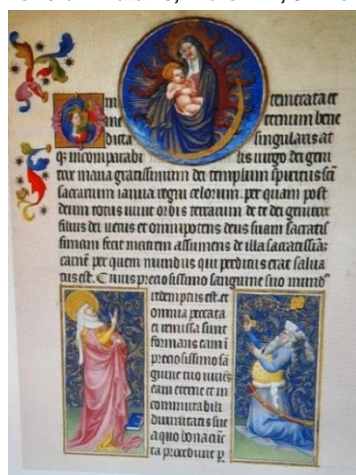 O in temerata et
in eternum bene
dicta singularis at
qꝫ incomparabi lis uirgo dei geni
trix maria gratissimum dei templum spiritus sc̃i
sacrarium ianua regni celorum. per quam post
deum totus uiuit orbis terrarum de te dei genitrix
filius dei uerus et omnipotens deus suam sacratis
simam fecit matrem assumens de illa sacratissiã
carnẽ per quem mundus qui perditus erat salua
tus est. Cuius preciosissimo sanguine suo mund⁹
redemptus est. et
omnia peccata
ei remissa sunt
formans eam i
preciosissimo sã
guine tuo
eam eterne et in
commutabili
diuinitatis sue
a quo bona cũc
ta procedunt